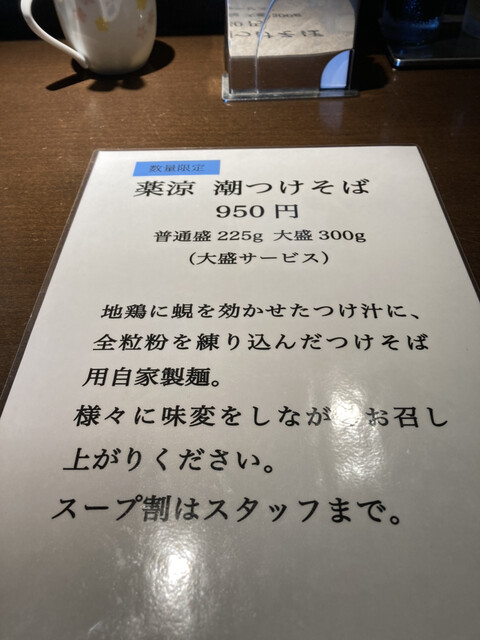 数量限定
薬涼 潮つけそば
950円
普通盛225g 大盛300g
(大盛サービス)
地鶏に蜆を効かせたつけ汁に、
全粒粉を練り込んだつけそば
用自家製麺。
様々に味変をしながらお召し
上がりください。
スープ割はスタッフまで。